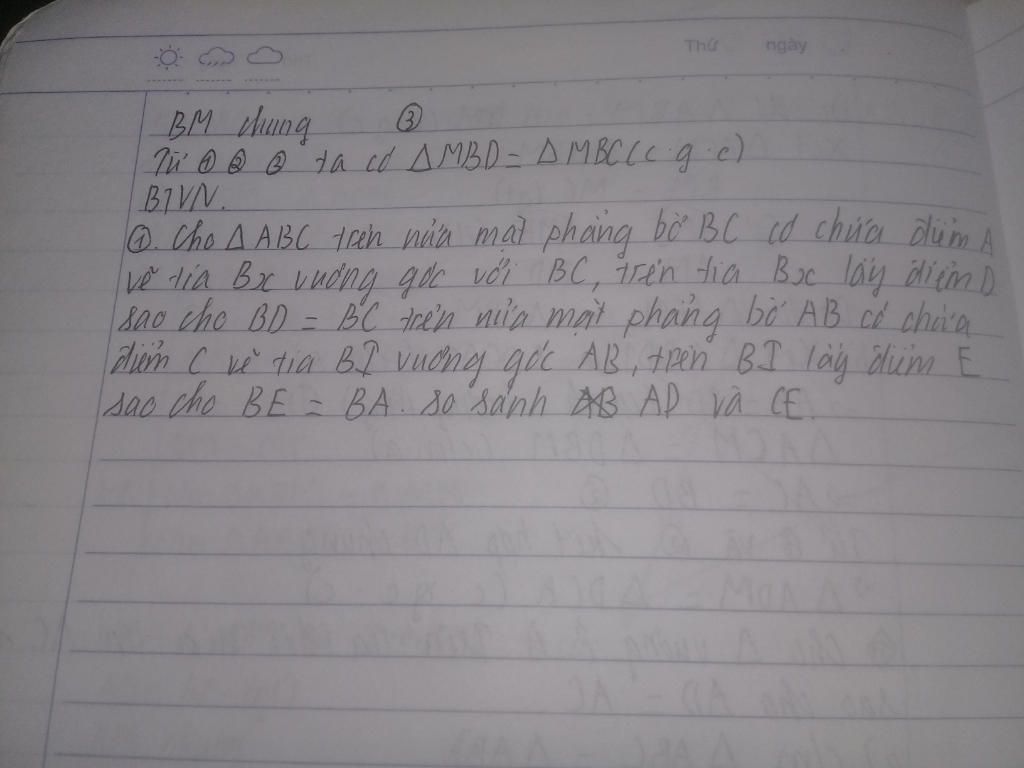 Thứ ngày
BM chung ③
Từ ① ② ③ ta có △MBD = △MBC (c.g.c)
BTVN.
①. Cho △ABC trên nửa mặt phẳng bờ BC có chứa điểm A
vẽ tia Bx vuông góc với BC, trên tia Bx lấy điểm D
sao cho BD = BC trên nửa mặt phẳng bờ AB có chứa
điểm C vẽ tia BI vuông góc AB, trên BI lấy điểm E
sao cho BE = BA. so sánh AD và CE.